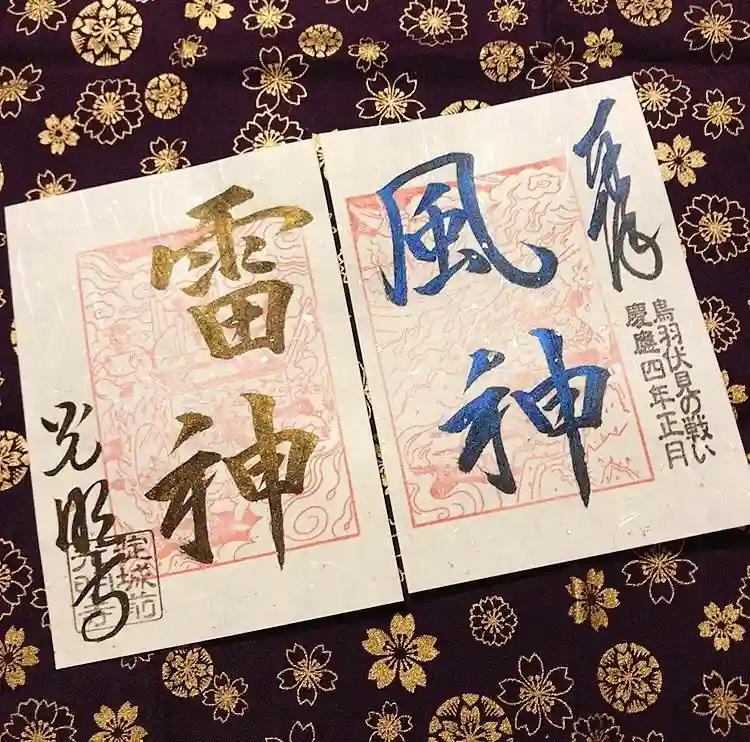 奉拝
鳥羽伏見の戦い
慶應四年正月
風神
雷神
光明寺
淀城前